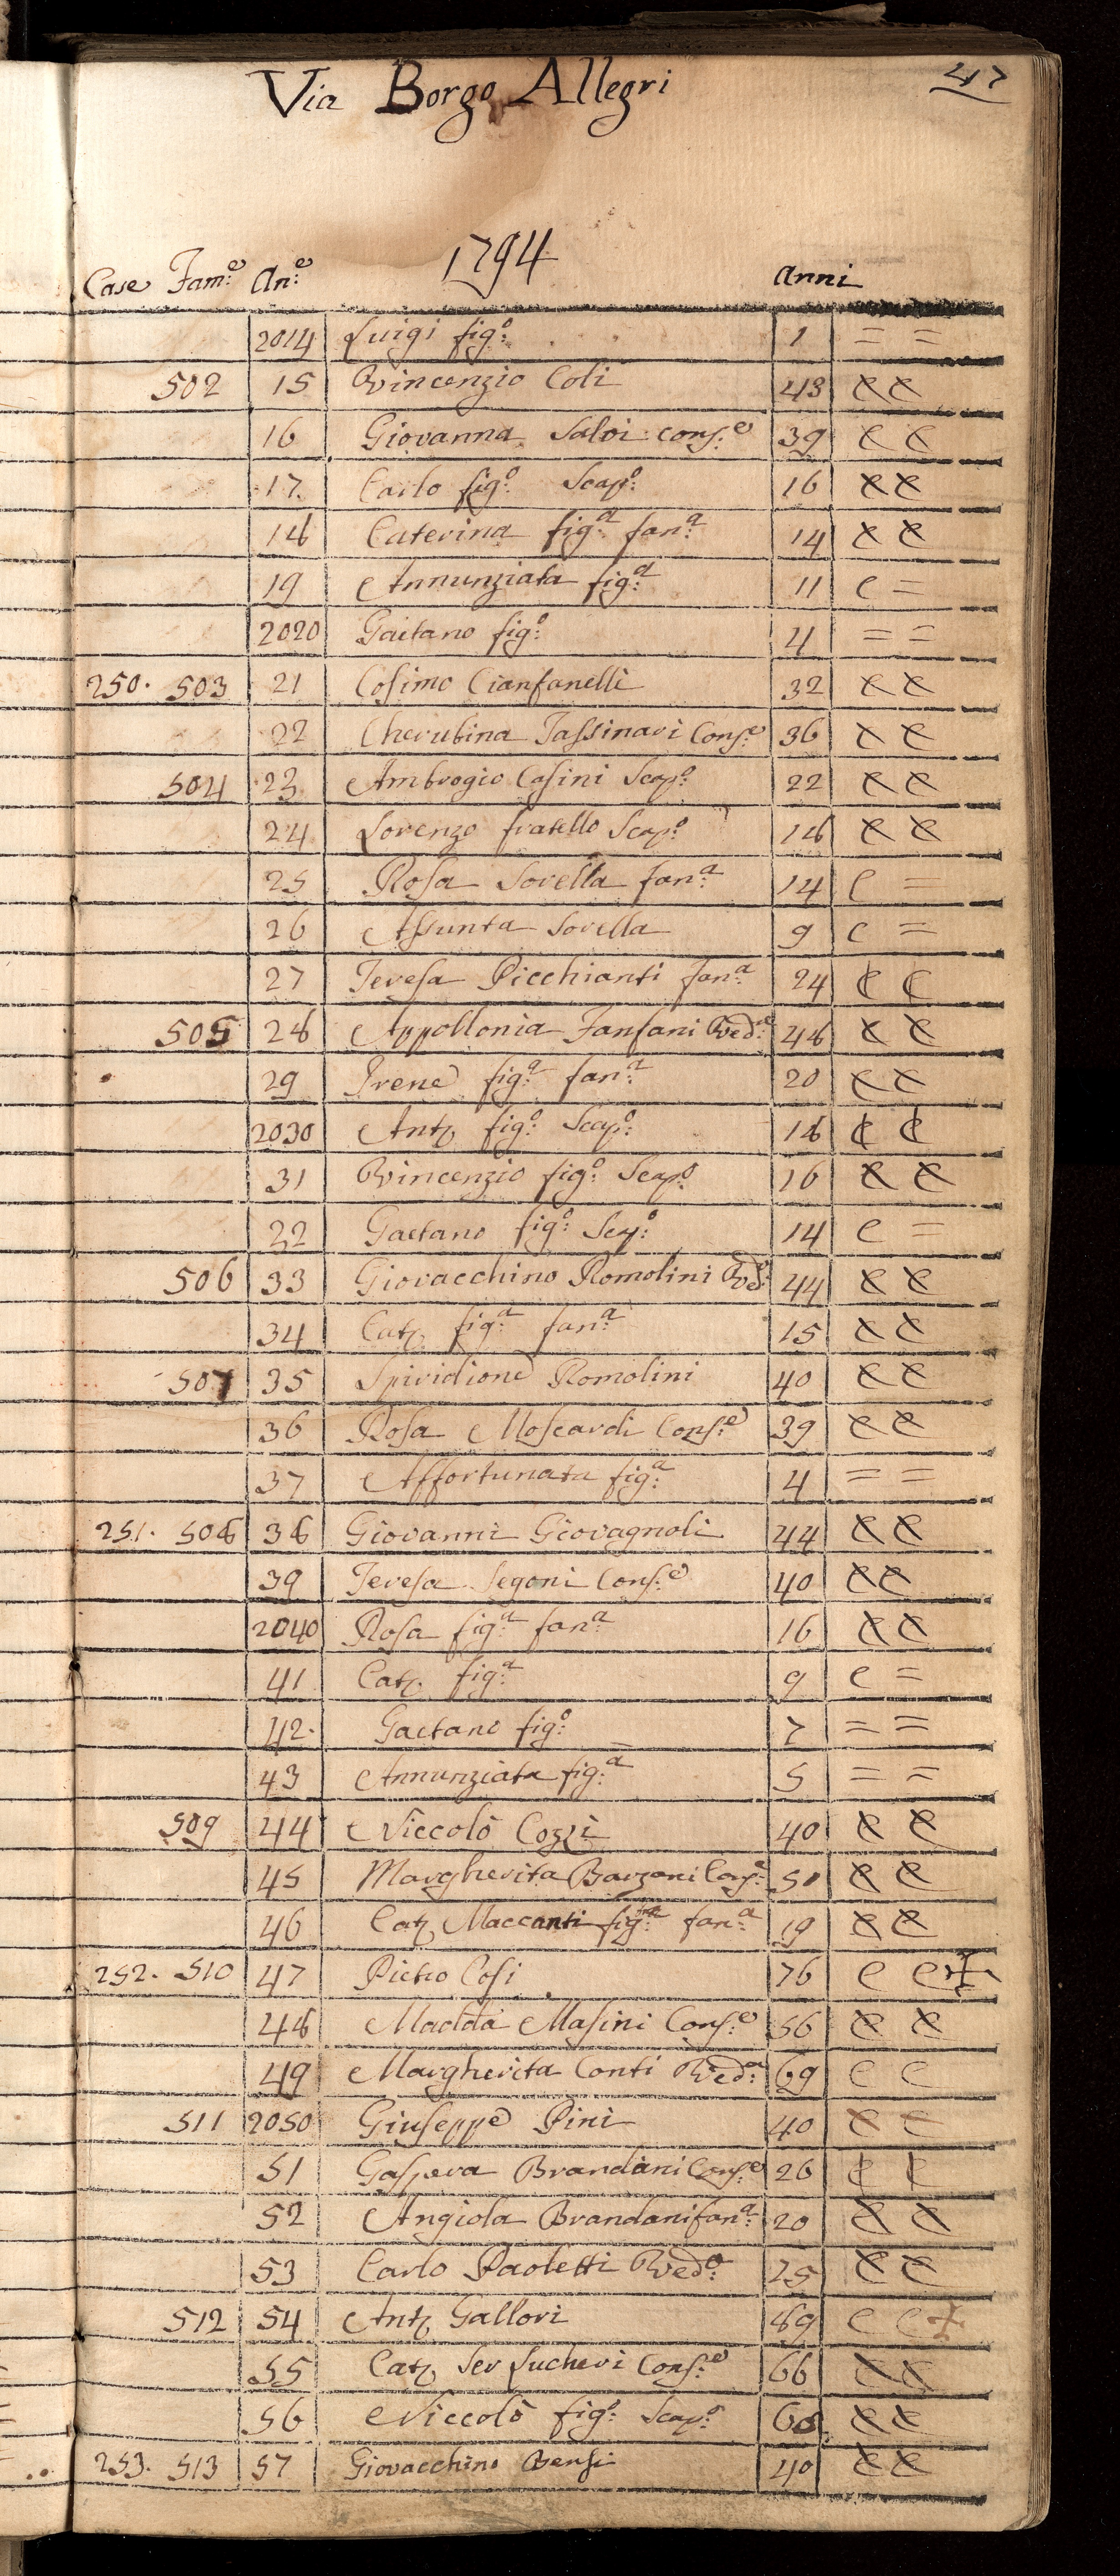 Via Borgo Allegri 47
1794
Case Fam:e An:e Anni
2014 Luigi fig:o 1 = =
502 15 Vincenzio Coli 43 e e
16 Giovanna Salvi Cons:e 39 e e
17 Carlo fig:o Scap:o 16 e e
18 Caterina fig:a fan:a 14 e e
19 Annunziata fig:a 11 e =
2020 Gaetano fig:o 4 = =
250. 503 21 Cosimo Cianfanelli 32 e e
22 Cherubina Tassinari Cons:e 36 e e
504 23 Ambrogio Casini Scap:o 22 e e
24 Lorenzo fratello Scap:o 18 e e
25 Rosa Sorella fan:a 14 e =
26 Assunta Sorella 9 e =
27 Teresa Picchianti fan:a 24 e e
505 28 Appollonia Fanfani Ved:a 48 e e
29 Irene fig:a fan:a 20 e e
2030 Ant. fig:o Scap:o 18 e e
31 Vincenzio fig:o Scap:o 16 e e
22 Gaetano fig:o Scp:o 14 e =
506 33 Giovacchino Romolini Ved:o 44 e e
34 Cat. fig:a fan:a 15 e e
507 35 Spiridione Romolini 40 e e
36 Rosa Moscardi Cons:e 39 e e
37 Affortunata fig:a 4 = =
251. 508 38 Giovanni Giovagnoli 44 e e
39 Teresa Segoni Cons:e 40 e e
2040 Rosa fig:a fan:a 16 e e
41 Cat. fig:a 9 e =
42. Gaetano fig:o 7 = =
43 Annunziata fig:a 5 = =
509 44 Niccolò Cozzi 40 e e
45 Margherita Barzoni Cons:e 51 e e
46 Cat. Maccanti fig:a fan:a 19 e e
252. 510 47 Pietro Cosi 76 e e +
48 Madd:a Masini Cons:e 56 e e
49 Margherita Conti Ved:a 69 e e
511 2050 Giuseppe Pini 40 e e
51 Gaspera Brandani Cons:e 26 e e
52 Angiola Brandani fan:a 20 e e
53 Carlo Paoletti Ved:o 25 e e
512 54 Ant. Gallori 89 e e +
55 Cat. Ser Lucheri Cons:e 66 e e
56 Niccolò fig:o Scap:o e e
253. 513 57 Giovacchino Bensi 40 e e